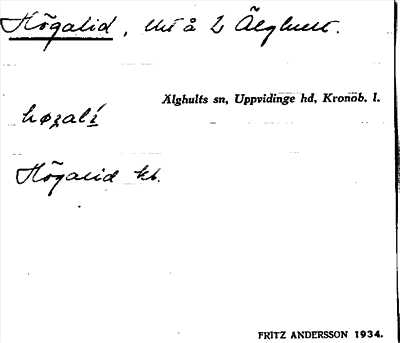 Högalid, utj å 2 Älghult.
Älghults sn, Uppvidinge hd, Kronob. l.
høgalí
Högalid kb.
FRITZ ANDERSSON 1934.